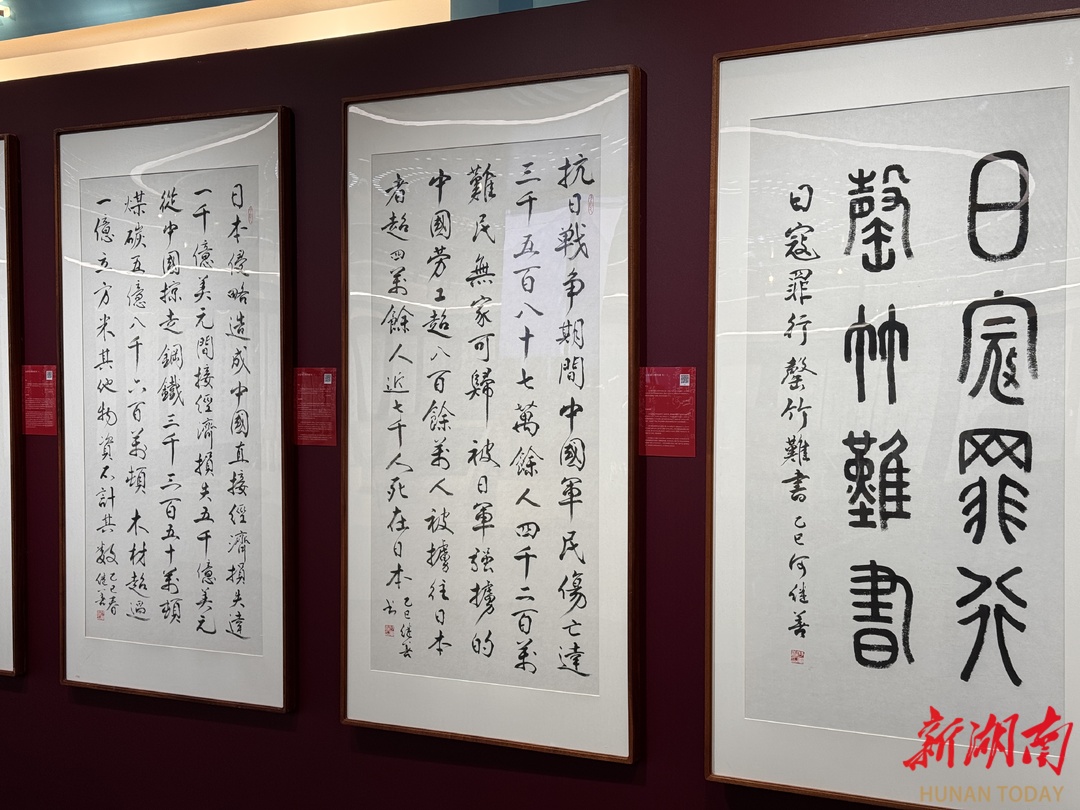 日寇罪行
罄竹難書
日寇罪行罄竹難書 乙巳何继善
抗日戦争期間中國軍民傷亡達
三千五百八十七萬餘人四千二百萬
難民無家可歸被日軍强擄的
中國劳工超八百餘萬人被擄往日本
者超四萬餘人近七千人死在日本 乙巳继善
书
日本侵略造成中國直接經濟損失達
一千億美元間接經濟損失五千億美元
從中國掠走鋼鐵三千三百五十萬頓
煤碳五億八千六百萬頓木材超過
一億立方米其他物資不計其數 乙巳春
继善
新湖南
HUNAN TODAY